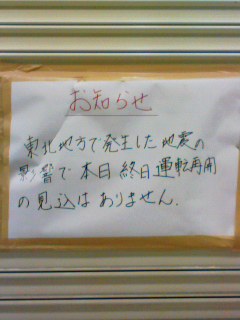 お知らせ
東北地方で発生した地震の
影響で本日終日運転再開
の見込はありません.